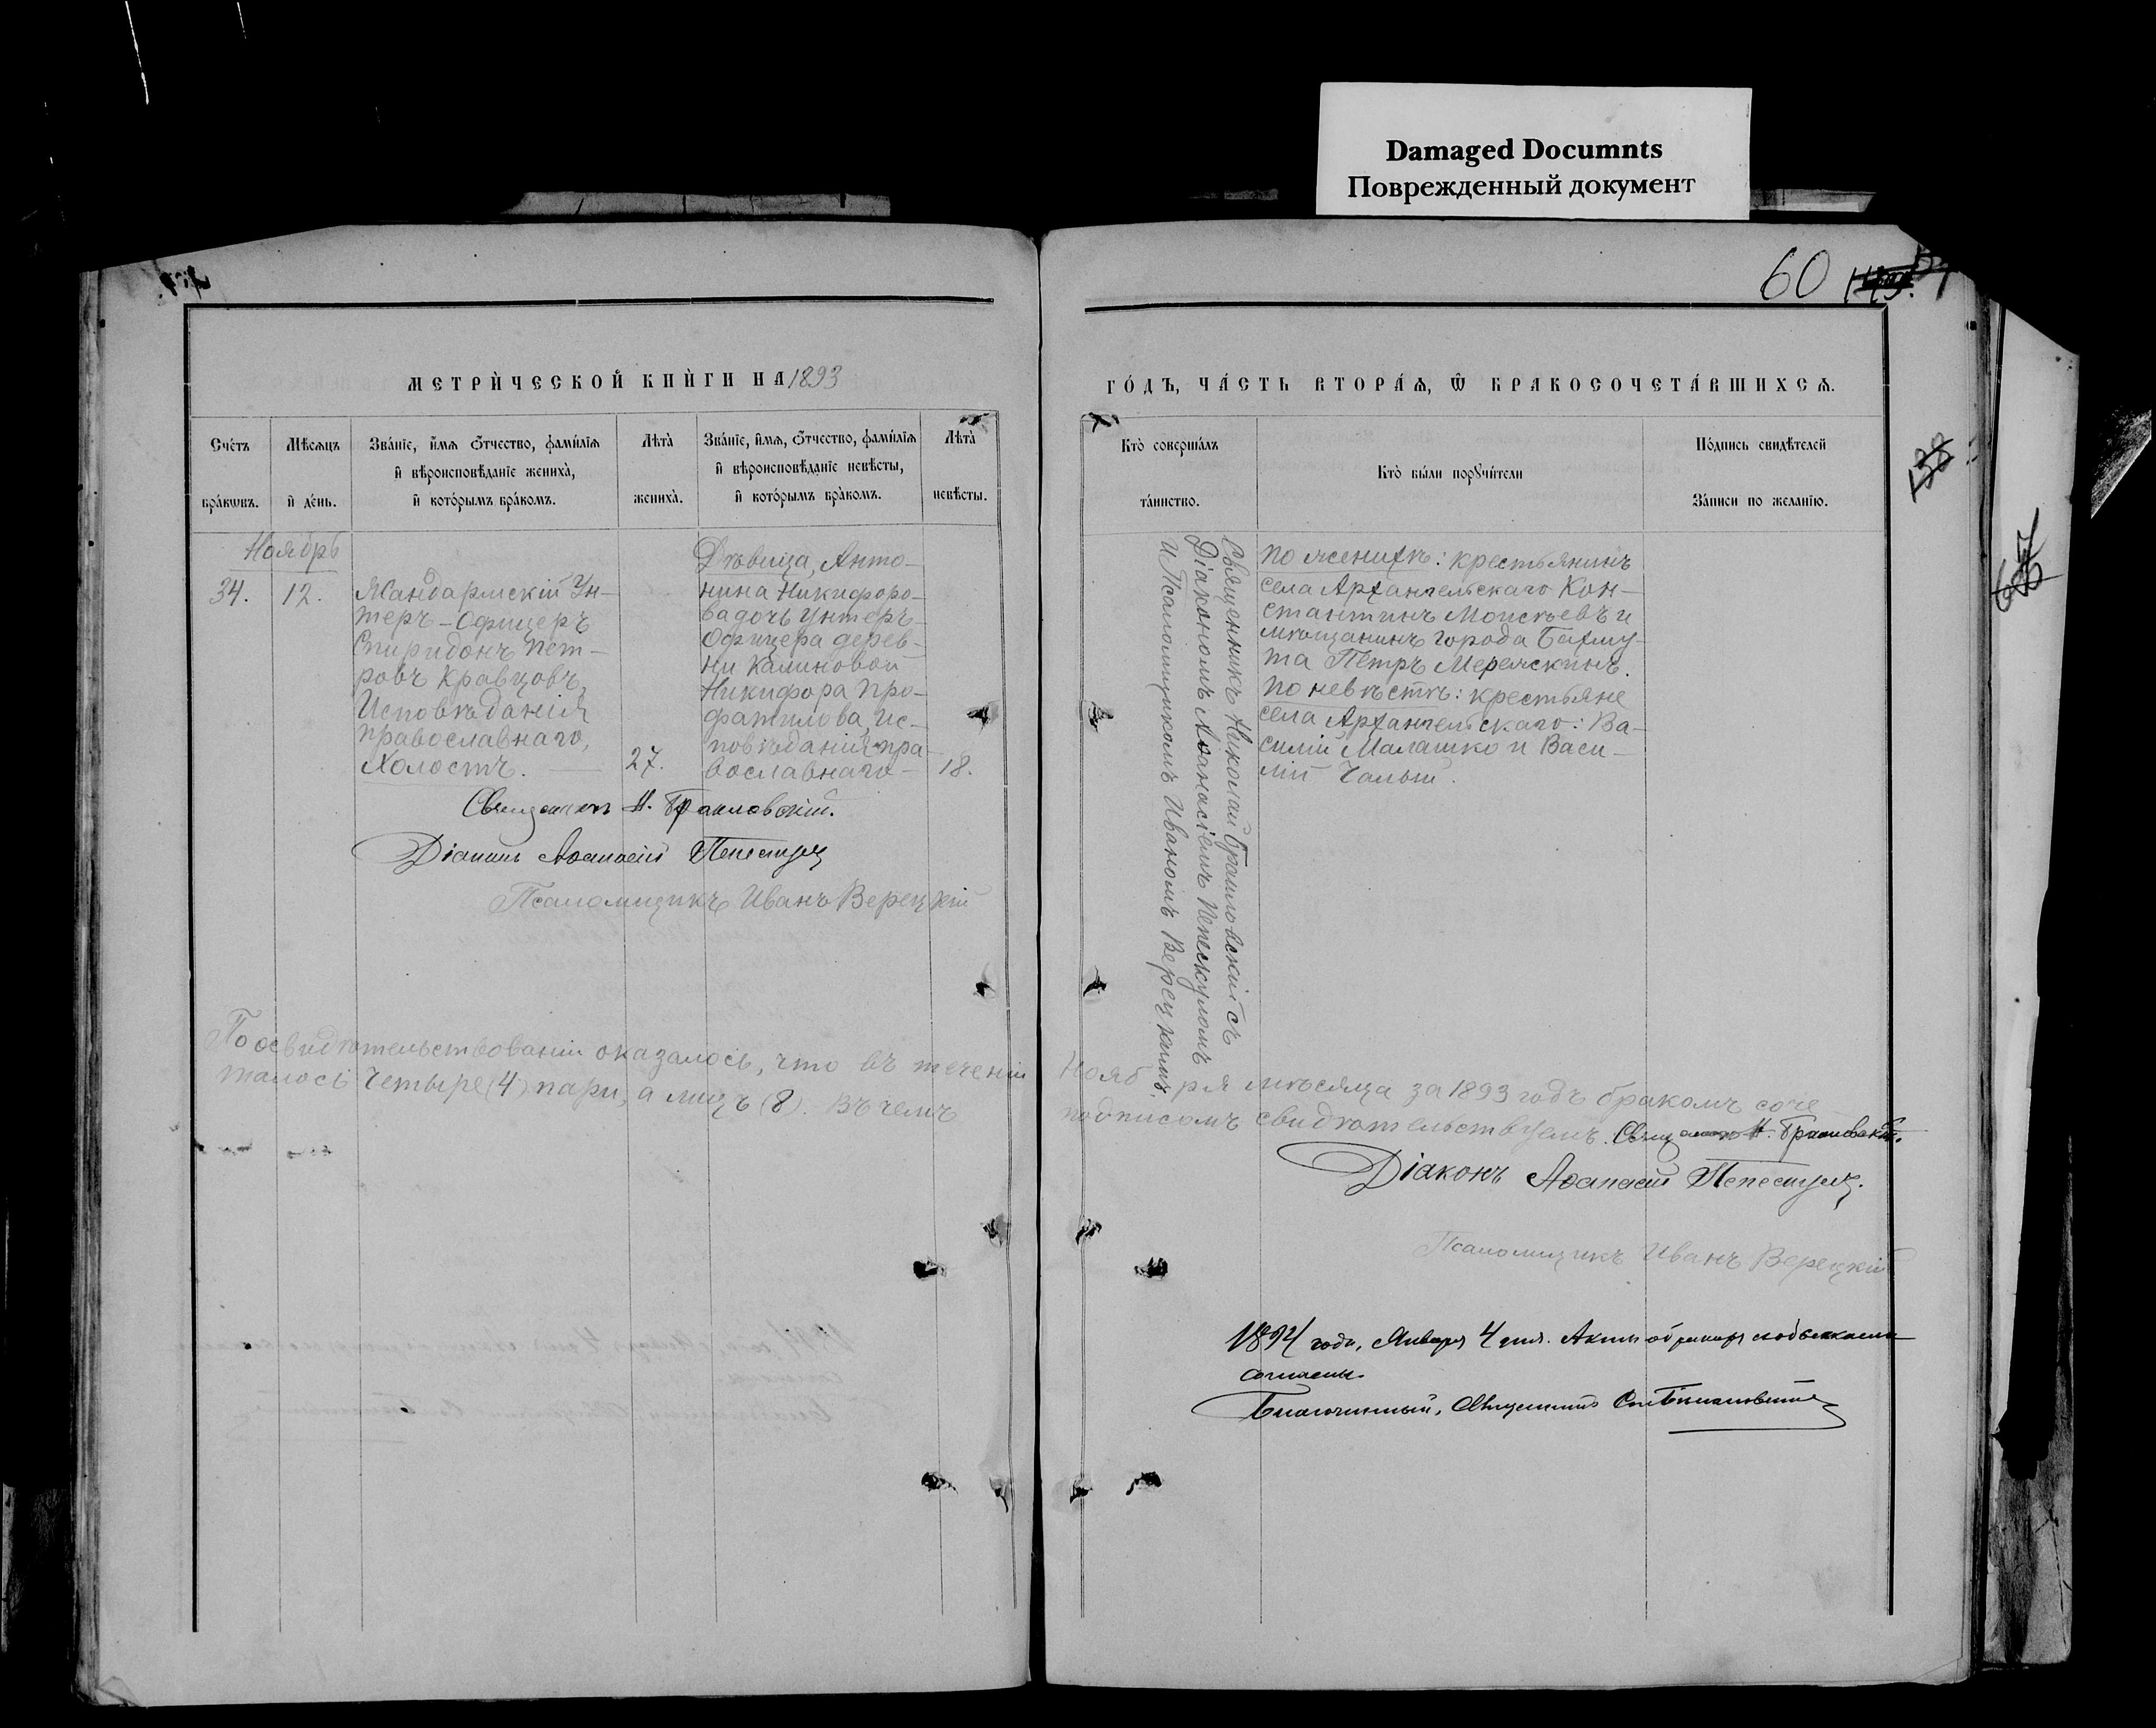 Damaged Documnts
Поврежденный документ
60
138
МЕТРИ́ЧЕСКОЙ КНИ́ГИ НА 1893
ГО́ДЪ, ЧА́СТЬ ВТОРА́Ѧ, Ѿ БРАКОСОЧЕТА́ВШИХСѦ.
Счетъ бра́кѡвъ.
Мѣсѧцъ и де́нь.
Зва́нїе, и́мѧ ѻ́тчество, фами́лїѧ и вѣроисповѣ́данїе жениха̀, и кото́рымъ бра́комъ.
Лѣта̀ жениха̀.
Зва́нїе, и́мѧ, ѻ́тчество, фами́лїѧ и вѣроисповѣ́данїе невѣ́сты, и кото́рымъ бра́комъ.
Лѣта̀ невѣ́сты.
Кто̀ соверша́лъ та́инство.
Кто̀ бы́ли порꙋчи́тели
По́дпись свидѣ́телей За́писи по жела́нїю.
Ноябрь
34.
12.
Жандармскій Ун-
теръ-Офицеръ
Спиридонъ Пет-
ровъ Кравцовъ,
Исповѣданія
православнаго,
Холостъ.
27.
Дѣвица, Анто-
нина Никифоро-
ва дочь Унтеръ-
Офицера дерев-
ни Калиновой
Никифора Про-
фатилова, ис-
повѣданія пра-
вославнаго
18.
Священникъ Николай Браиловскій съ
Діакономъ Аѳанасіемъ
И Псаломщикомъ Иваномъ Верецкимъ.
По женихѣ: крестьянинъ
села Архангельскаго Кон-
стантинъ Моисѣевъ и
мѣщанинъ города Бахму-
та Петръ Мережскинъ.
По невѣстѣ: крестьяне
села Архангельскаго: Ва-
силій Малашко и Васи-
лій Чалый.
Священникъ Н. Браиловскій.
Діаконъ Аѳанасій
Псаломщикъ Иванъ Верецкій
По освидѣтельствованіи оказалось, что въ теченіи Ноября мѣсяца за 1893 годъ бракомъ соче-
талось четыре (4) пары, а лицъ (8). Въ чемъ подписомъ свидѣтельствуемъ. Священникъ Н. Браиловскій.
Діаконъ Аѳанасій
Псаломщикъ Иванъ Верецкій
1894 года, Января 4 дня. Акты
согласны.
Благочинный, Священникъ